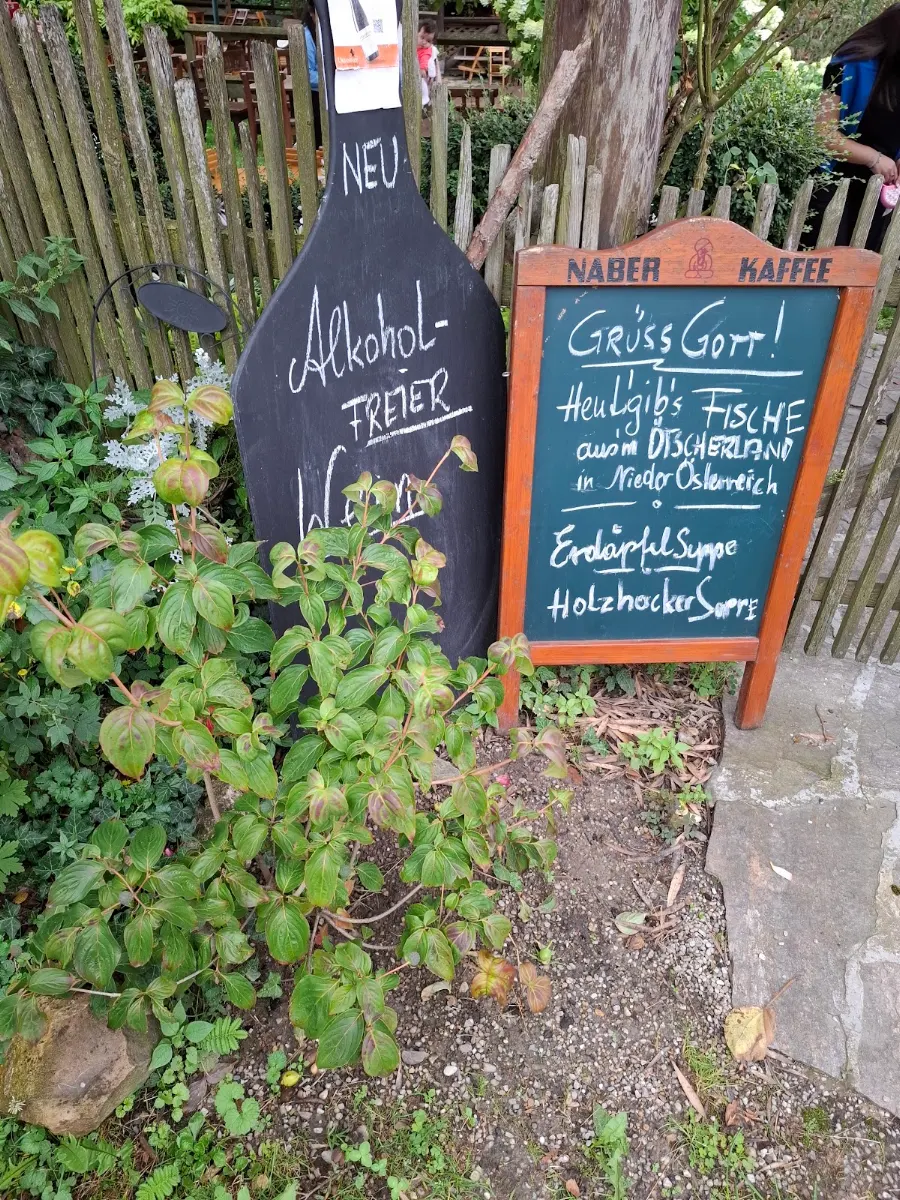 NEU
Alkohol-
FREIER
NABER KAFFEE
Grüss Gott!
Heut gib's FISCHE
ausm ÖTSCHERLAND
in NiederÖsterreich
ErdäpfelSuppe
HolzhackerSuppe